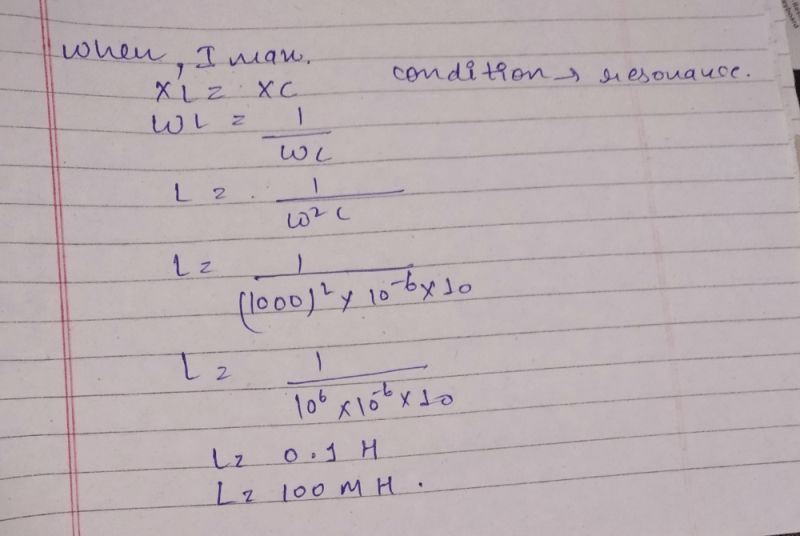 When, I max.
condition → resonance.
XL = XC
WL = 1/WC
L = 1/W²C
L = 1/(1000)² × 10⁻⁶ × 10
L = 1/10⁶ × 10⁻⁶ × 10
L = 0.1 H
L = 100 MH.